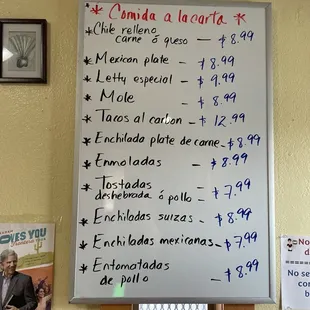 * Comida a la carta *
* Chile relleno
carne ó queso — $8.99
* Mexican plate — $8.99
* Letty especial — $9.99
* Mole — $8.99
* Tacos al carbon — $12.99
* Enchilada plate de carne - $8.99
* Enmoladas - $8.99
* Tostadas
deshebrada ó pollo - $7.99
* Enchiladas suizas - $8.99
* Enchiladas mexicanas - $7.99
* Entomatadas
de pollo - $8.99
YOU
No
No se